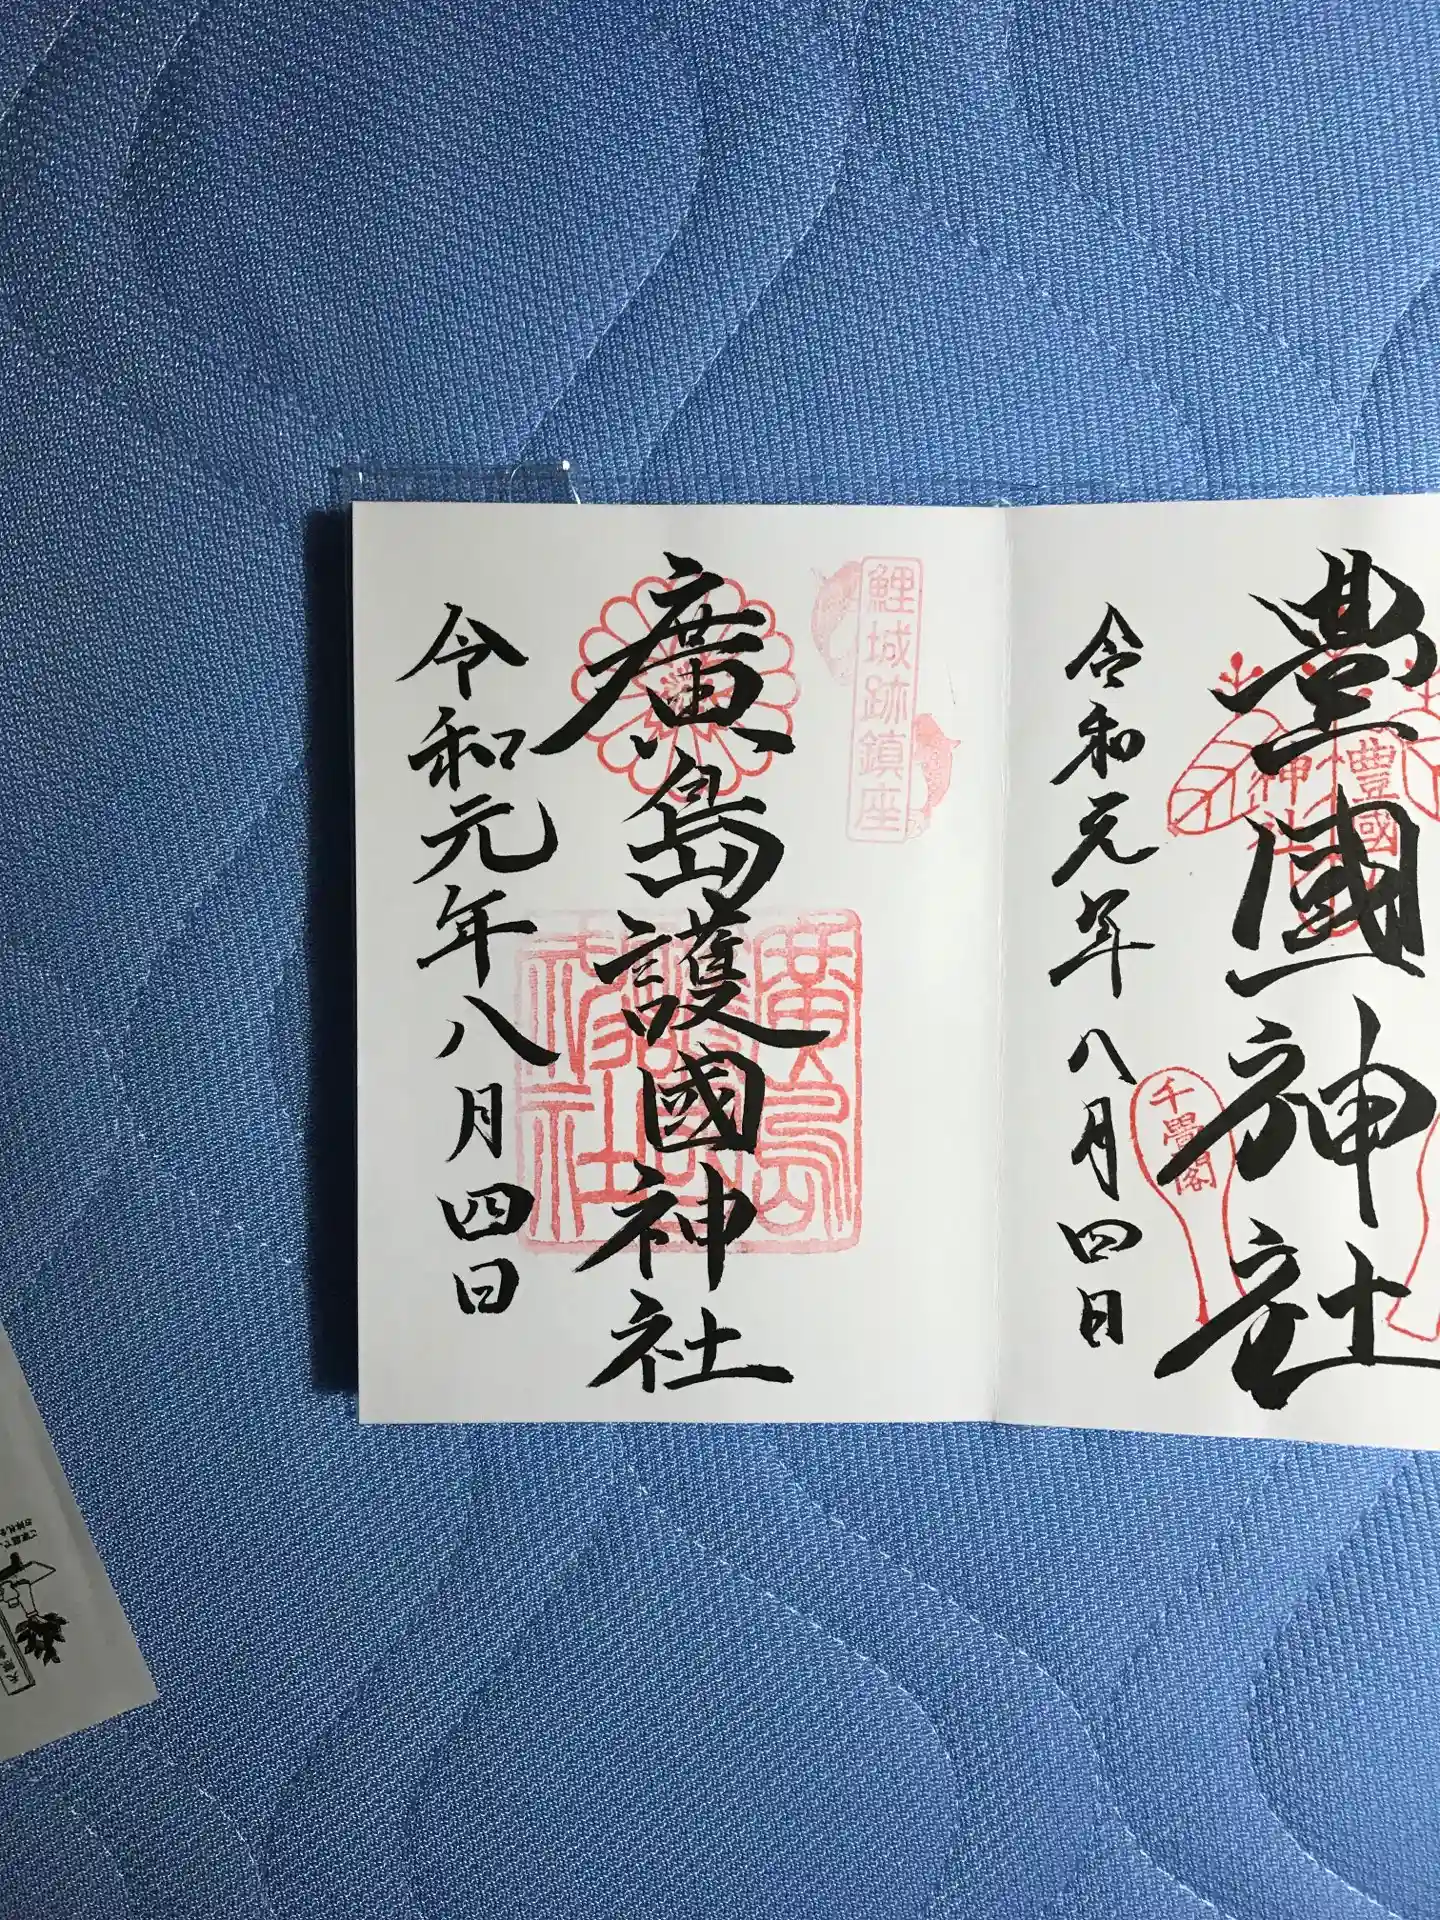 豊國神社
豊國
神社
千畳閣
令和元年八月四日
鯉城跡鎮座
廣島護國神社
廣島
護國
神社
令和元年八月四日